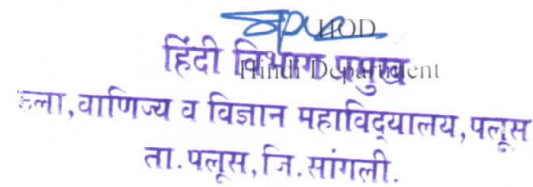 HOD
हिंदी विभाग प्रमुख
Hindi Department
कला, वाणिज्य व विज्ञान महाविद्यालय, पलूस
ता. पलूस, जि. सांगली.